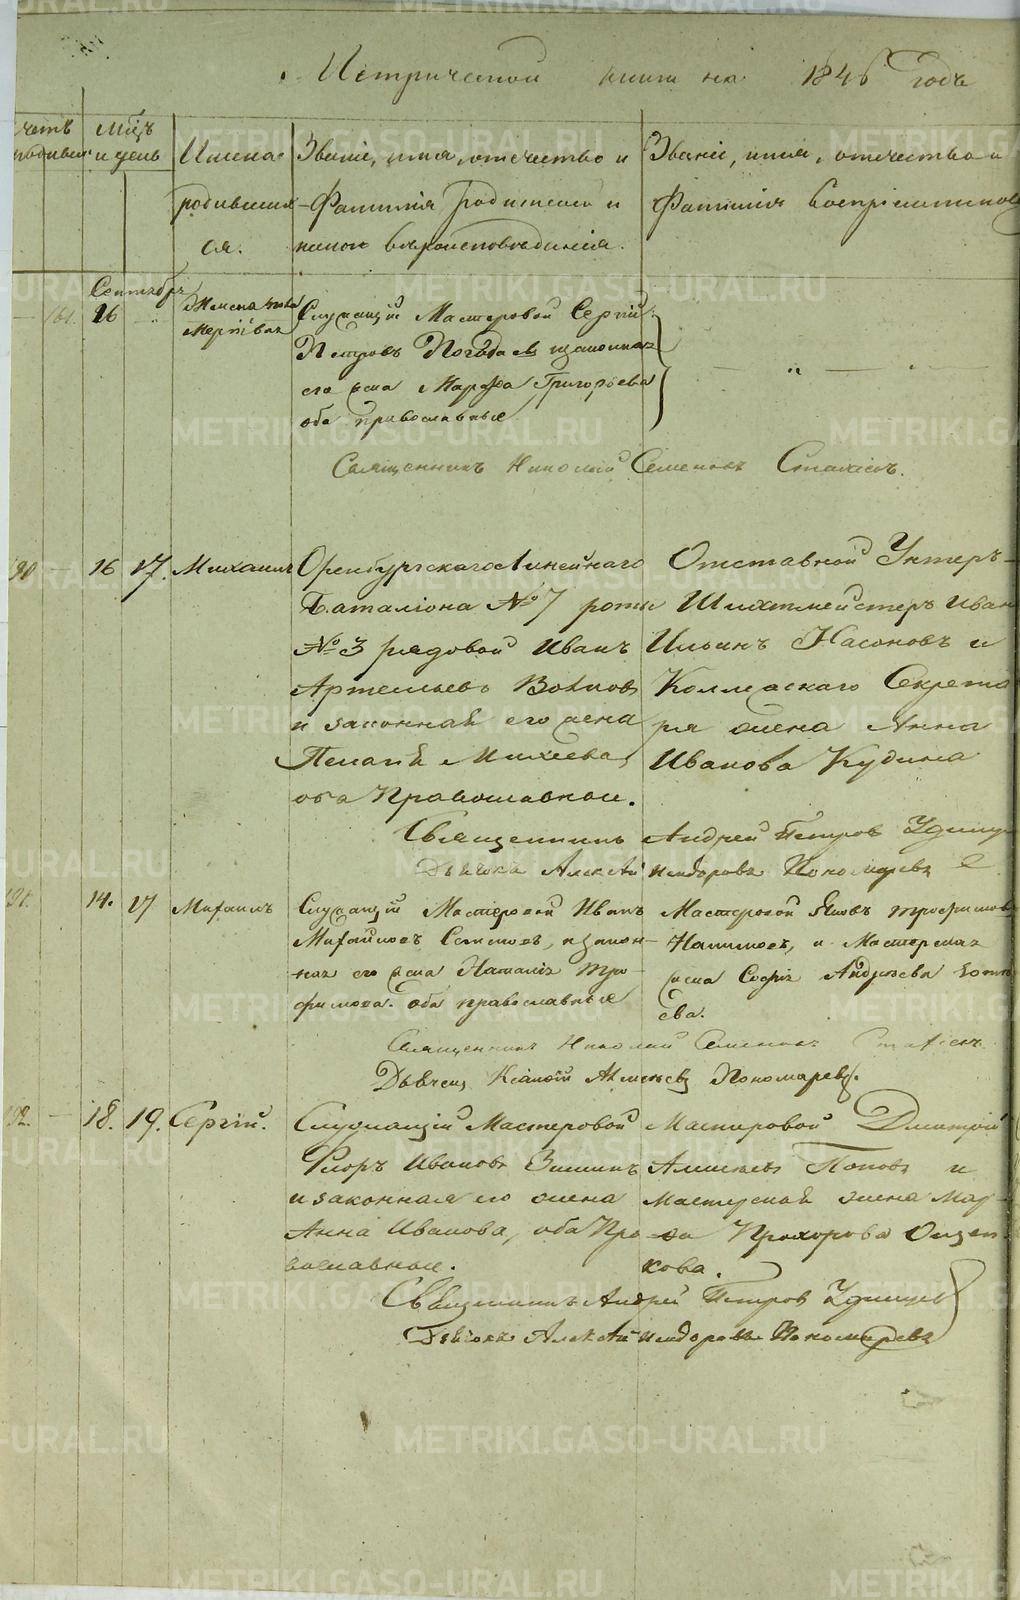 Метрической книги на 1846 годъ
счетъ родившихся
Мѣцъ и день
Имена родившихся.
Званіе, имя, отечество и
Фамилія родителей и
какого вѣроисповѣданія.
Званіе, имя, отечество и
Фамилія воспріемниковъ
Сентябрь
161. 16
Женска пола
мертвая
Служащій Мастеровой Сергій
Петровъ Погодаевъ и законная
его жена Марѳа Григорьева
оба православные
Священникъ Николай Семеновъ
190 — 16 17. Михаилъ
Оренбургскаго Линейнаго
Баталіона № 7 роты
№ 3 рядовой Иванъ
Артемьевъ Волковъ
и законная его жена
Пелагѣя Михеева,
оба Православные.
Отставной Унтеръ-
Шихтмейстеръ Иван
Ильинъ Насоновъ и
Коллежскаго Секрета
ря жена Анна
Иванова Кудина
Священникъ Андрей Петров Удинцо
Дьячокъ Алексѣй Исидоровъ Пономаревъ
191. 14. 17 Михаилъ
Служащій Мастеровой Иванъ
Михайловъ, и закон-
ная его жена Наталія Тро-
фимова. оба православные
Мастеровой Яковъ Трофимовъ
и Мастерская
жена Софія Андреева
ева.
Священникъ Николай Семеновъ
Дьячекъ Алексѣевъ Пономаревъ.
192. — 18. 19. Сергій.
Служащій Мастеровой
Флоръ Ивановъ Зиминъ
и законная его жена
Анна Иванова, оба Пра-
вославные.
Мастеровой Дмитрій
Алексѣевъ Поповъ и
Мастерская жена Мар-
ѳа Прохорова Ощеп-
кова.
Священникъ Андрей Петров Удинцев
Дьячокъ Алексѣй Исидоровъ Пономаревъ
METRIKI.GASO-URAL.RU